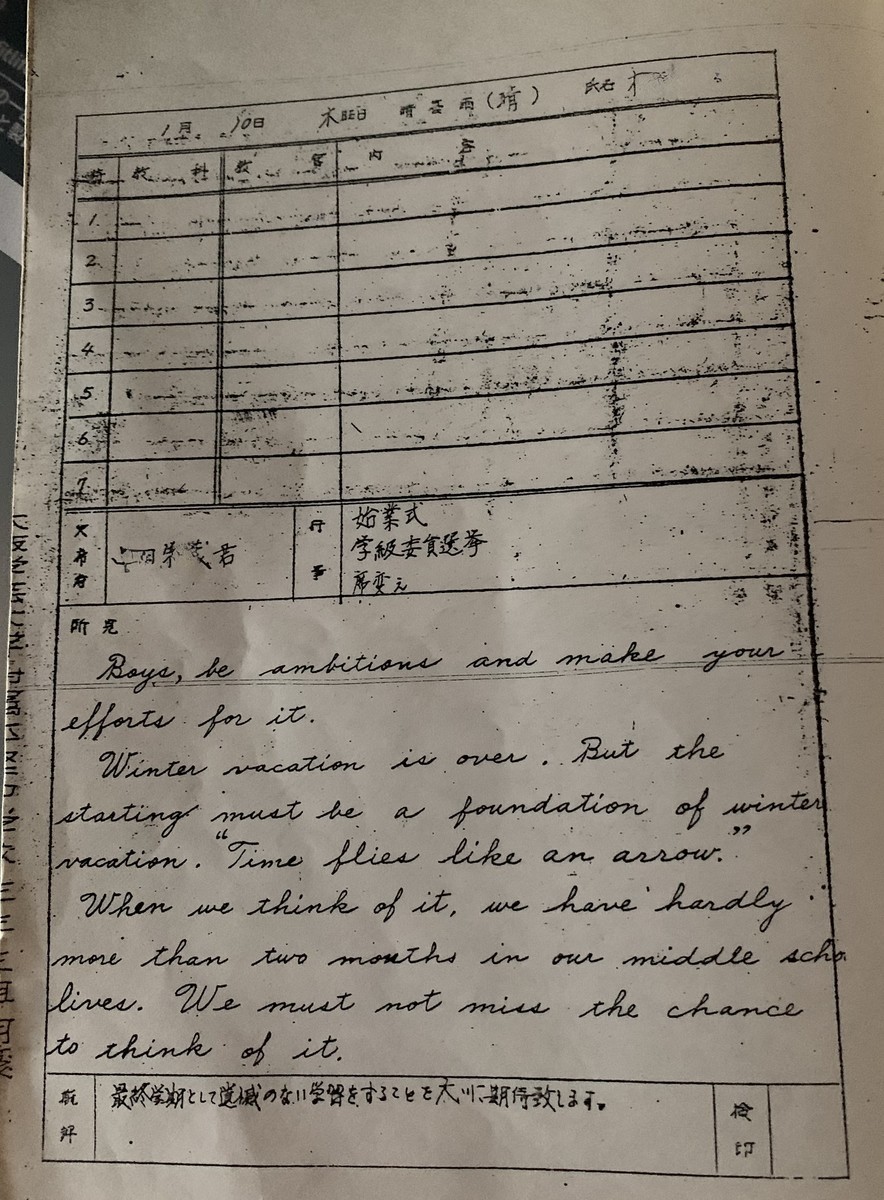 1月 10日 木曜日 晴 曇 雨 (晴) 氏名
時 教科 教官 内容
1.
2
3
4
5
6
7
君
行事
始業式
学級委員選挙
席変え
所見
Boys, be ambitions and make your
efforts for it.
Winter vacation is over. But the
starting must be a foundation of winter
vacation. "Time flies like an arrow."
When we think of it, we have hardly
more than two months in our middle scho
lives. We must not miss the chance
to think of it.
最終学期として遺憾のない学習をすることを大いに期待致します。
検印